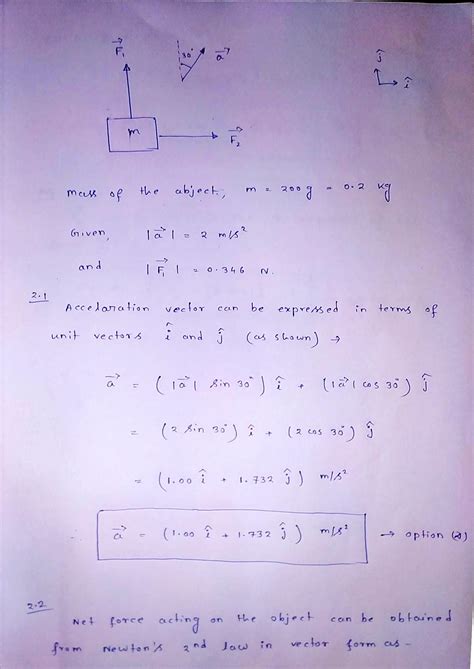 F⃗₁
30°
a⃗
ĵ
î
m
F⃗₂
mass of the abject, m = 200 g = 0.2 kg
Given, |a⃗| = 2 m/s²
and |F⃗₁| = 0.346 N.
2.1 Accelaration vector can be expressed in terms of
unit vectors î and ĵ (as shown) →
a⃗ = (|a⃗| sin 30°) î + (|a⃗| cos 30°) ĵ
= (2 sin 30°) î + (2 cos 30°) ĵ
= (1.00 î + 1.732 ĵ) m/s²
∴ a⃗ = (1.00 î + 1.732 ĵ) m/s² → option
2.2 Net force acting on the object can be obtained
from Newton's 2nd law in vector form as -